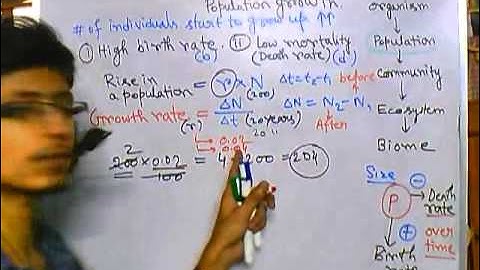 Population growth
# of individuals start to grow up ↑↑
① High birth rate, (b) ② Low mortality (Death rate) (d)
Rise in a population = r × N (200) Δt = t₂-t₁ before
Growth rate (r) = ΔN/Δt (20 years) ΔN = N₂ - N₁
After
0.02
200 × 0.02/100 = 4 200 = 204
2
organism
Population
Community
Ecosystem
Biome
Size
P
Death rate
over time
Birth rate